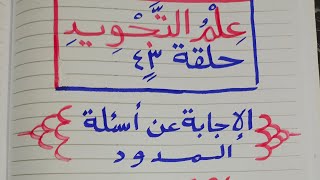 عِلْمُ التَّجْوِيدِ
حلقة ٤٣
الإجابة عن أسئلة
المدود